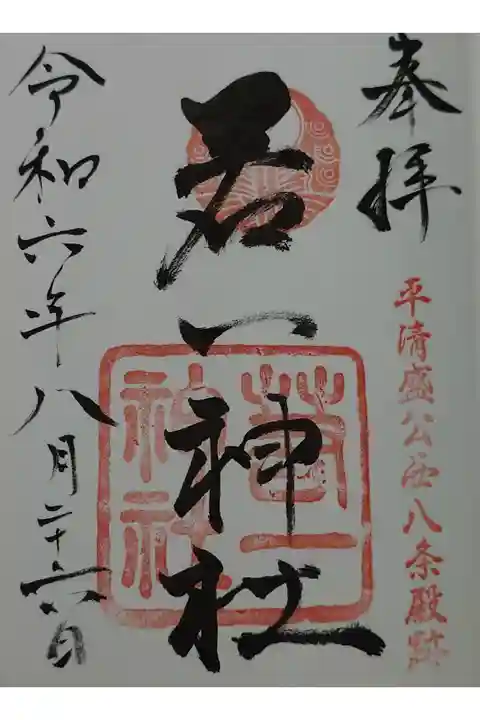 奉拝
平清盛公西八条殿跡
若一神社
若一
神社
令和六年八月二十六日